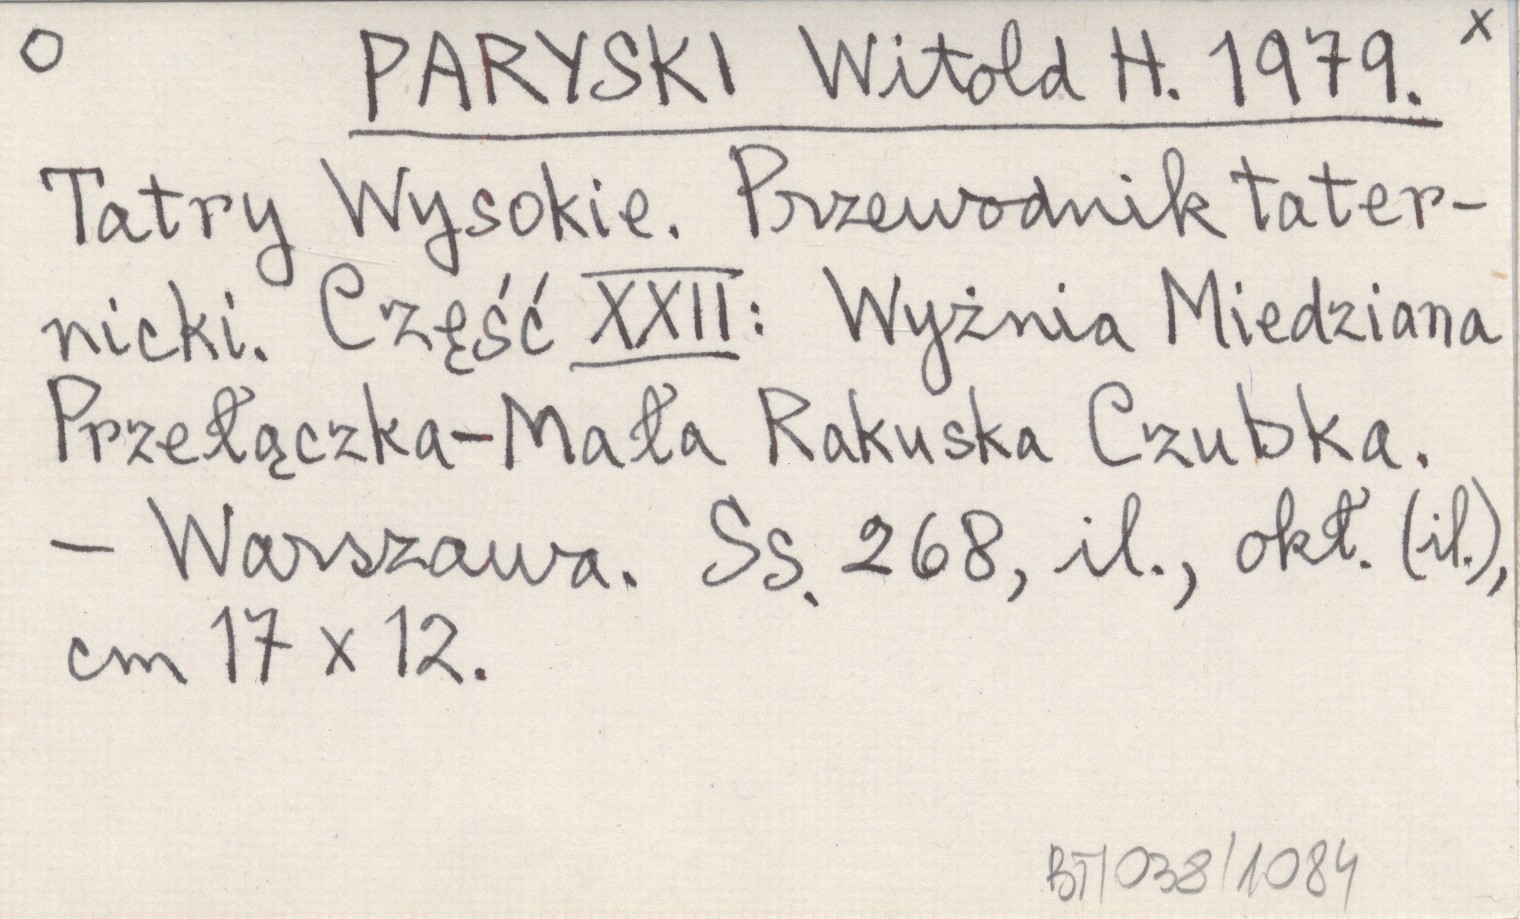 O PARYSKI Witold H. 1979. x
Tatry Wysokie. Przewodnik tater-
nicki. Część XXII: Wyżnia Miedziana
Przełączka-Mała Rakuska Czubka.
– Warszawa. Ss. 268, il., okł. (il.),
cm 17 x 12.
BT/038/1084